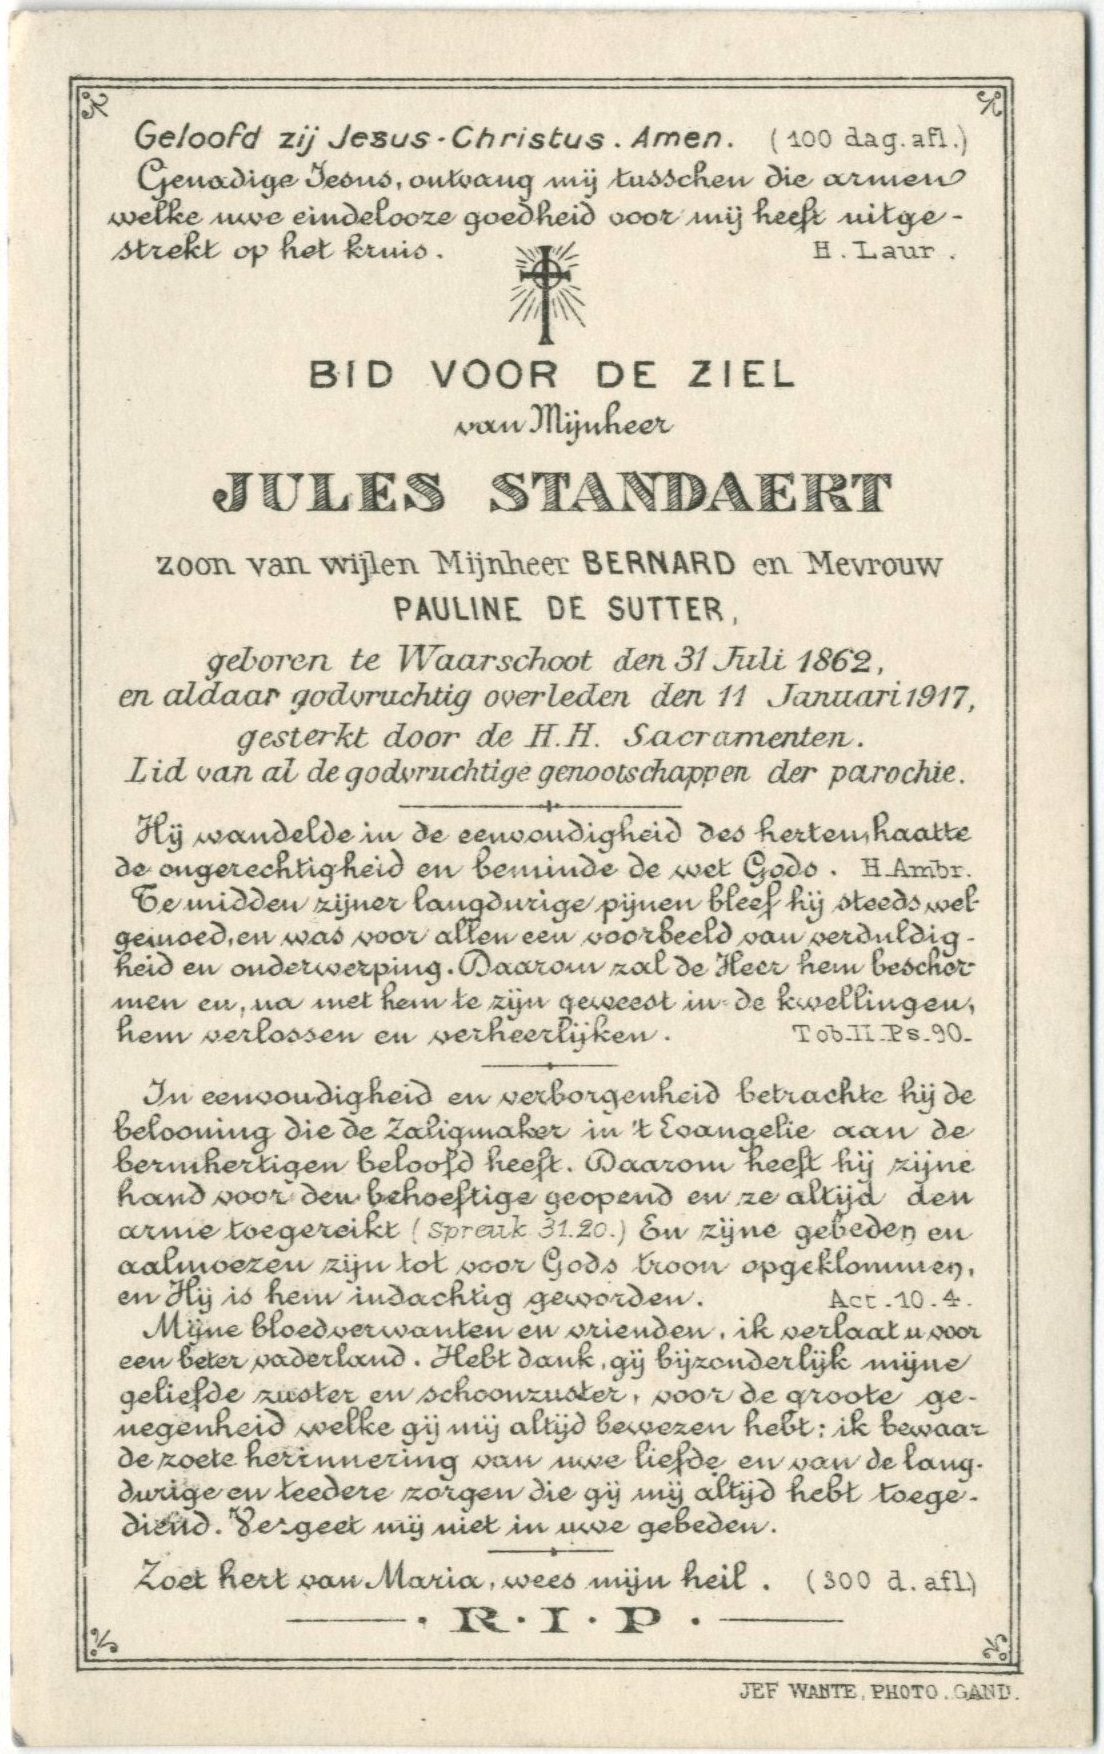 Geloofd zij Jesus-Christus. Amen. (100 dag. afl.)
Genadige Jesus, ontvang mij tusschen die armen
welke uwe eindelooze goedheid voor mij heeft uitge-
strekt op het kruis. H. Laur.
BID VOOR DE ZIEL
van Mijnheer
JULES STANDAERT
zoon van wijlen Mijnheer BERNARD en Mevrouw
PAULINE DE SUTTER,
geboren te Waarschoot den 31 Juli 1862,
en aldaar godvruchtig overleden den 11 Januari 1917,
gesterkt door de H.H. Sacramenten.
Lid van al de godvruchtige genootschappen der parochie.
Hij wandelde in de eenvoudigheid des herten, haatte
de ongerechtigheid en beminde de wet Gods. H. Ambr.
Te midden zijner langdurige pijnen bleef hij steeds wel-
gemoed, en was voor allen een voorbeeld van verduldig-
heid en onderwerping. Daarom zal de Heer hem bescher-
men en, na met hem te zijn geweest in de kwellingen,
hem verlossen en verheerlijken. Tob. II. Ps. 90.
In eenvoudigheid en verborgenheid betrachte hij de
belooning die de Zaligmaker in 't Evangelie aan de
bermhertigen beloofd heeft. Daarom heeft hij zijne
hand voor den behoeftige geopend en ze altijd den
arme toegereikt (Spreuk 31.20.) En zijne gebeden en
aalmoezen zijn tot voor Gods troon opgeklommen,
en Hij is hem indachtig geworden. Act. 10. 4.
Mijne bloedverwanten en vrienden, ik verlaat u voor
een beter vaderland. Hebt dank, gij bijzonderlijk mijne
geliefde zuster en schoonzuster, voor de groote ge-
negenheid welke gij mij altijd bewezen hebt; ik bewaar
de zoete herinnering van uwe liefde en van de lang-
durige en teedere zorgen die gij mij altijd hebt toege-
diend. Vergeet mij niet in uwe gebeden.
Zoet hert van Maria, wees mijn heil. (300 d. afl)
R. I. P.
JEF WANTE, PHOTO. GAND.